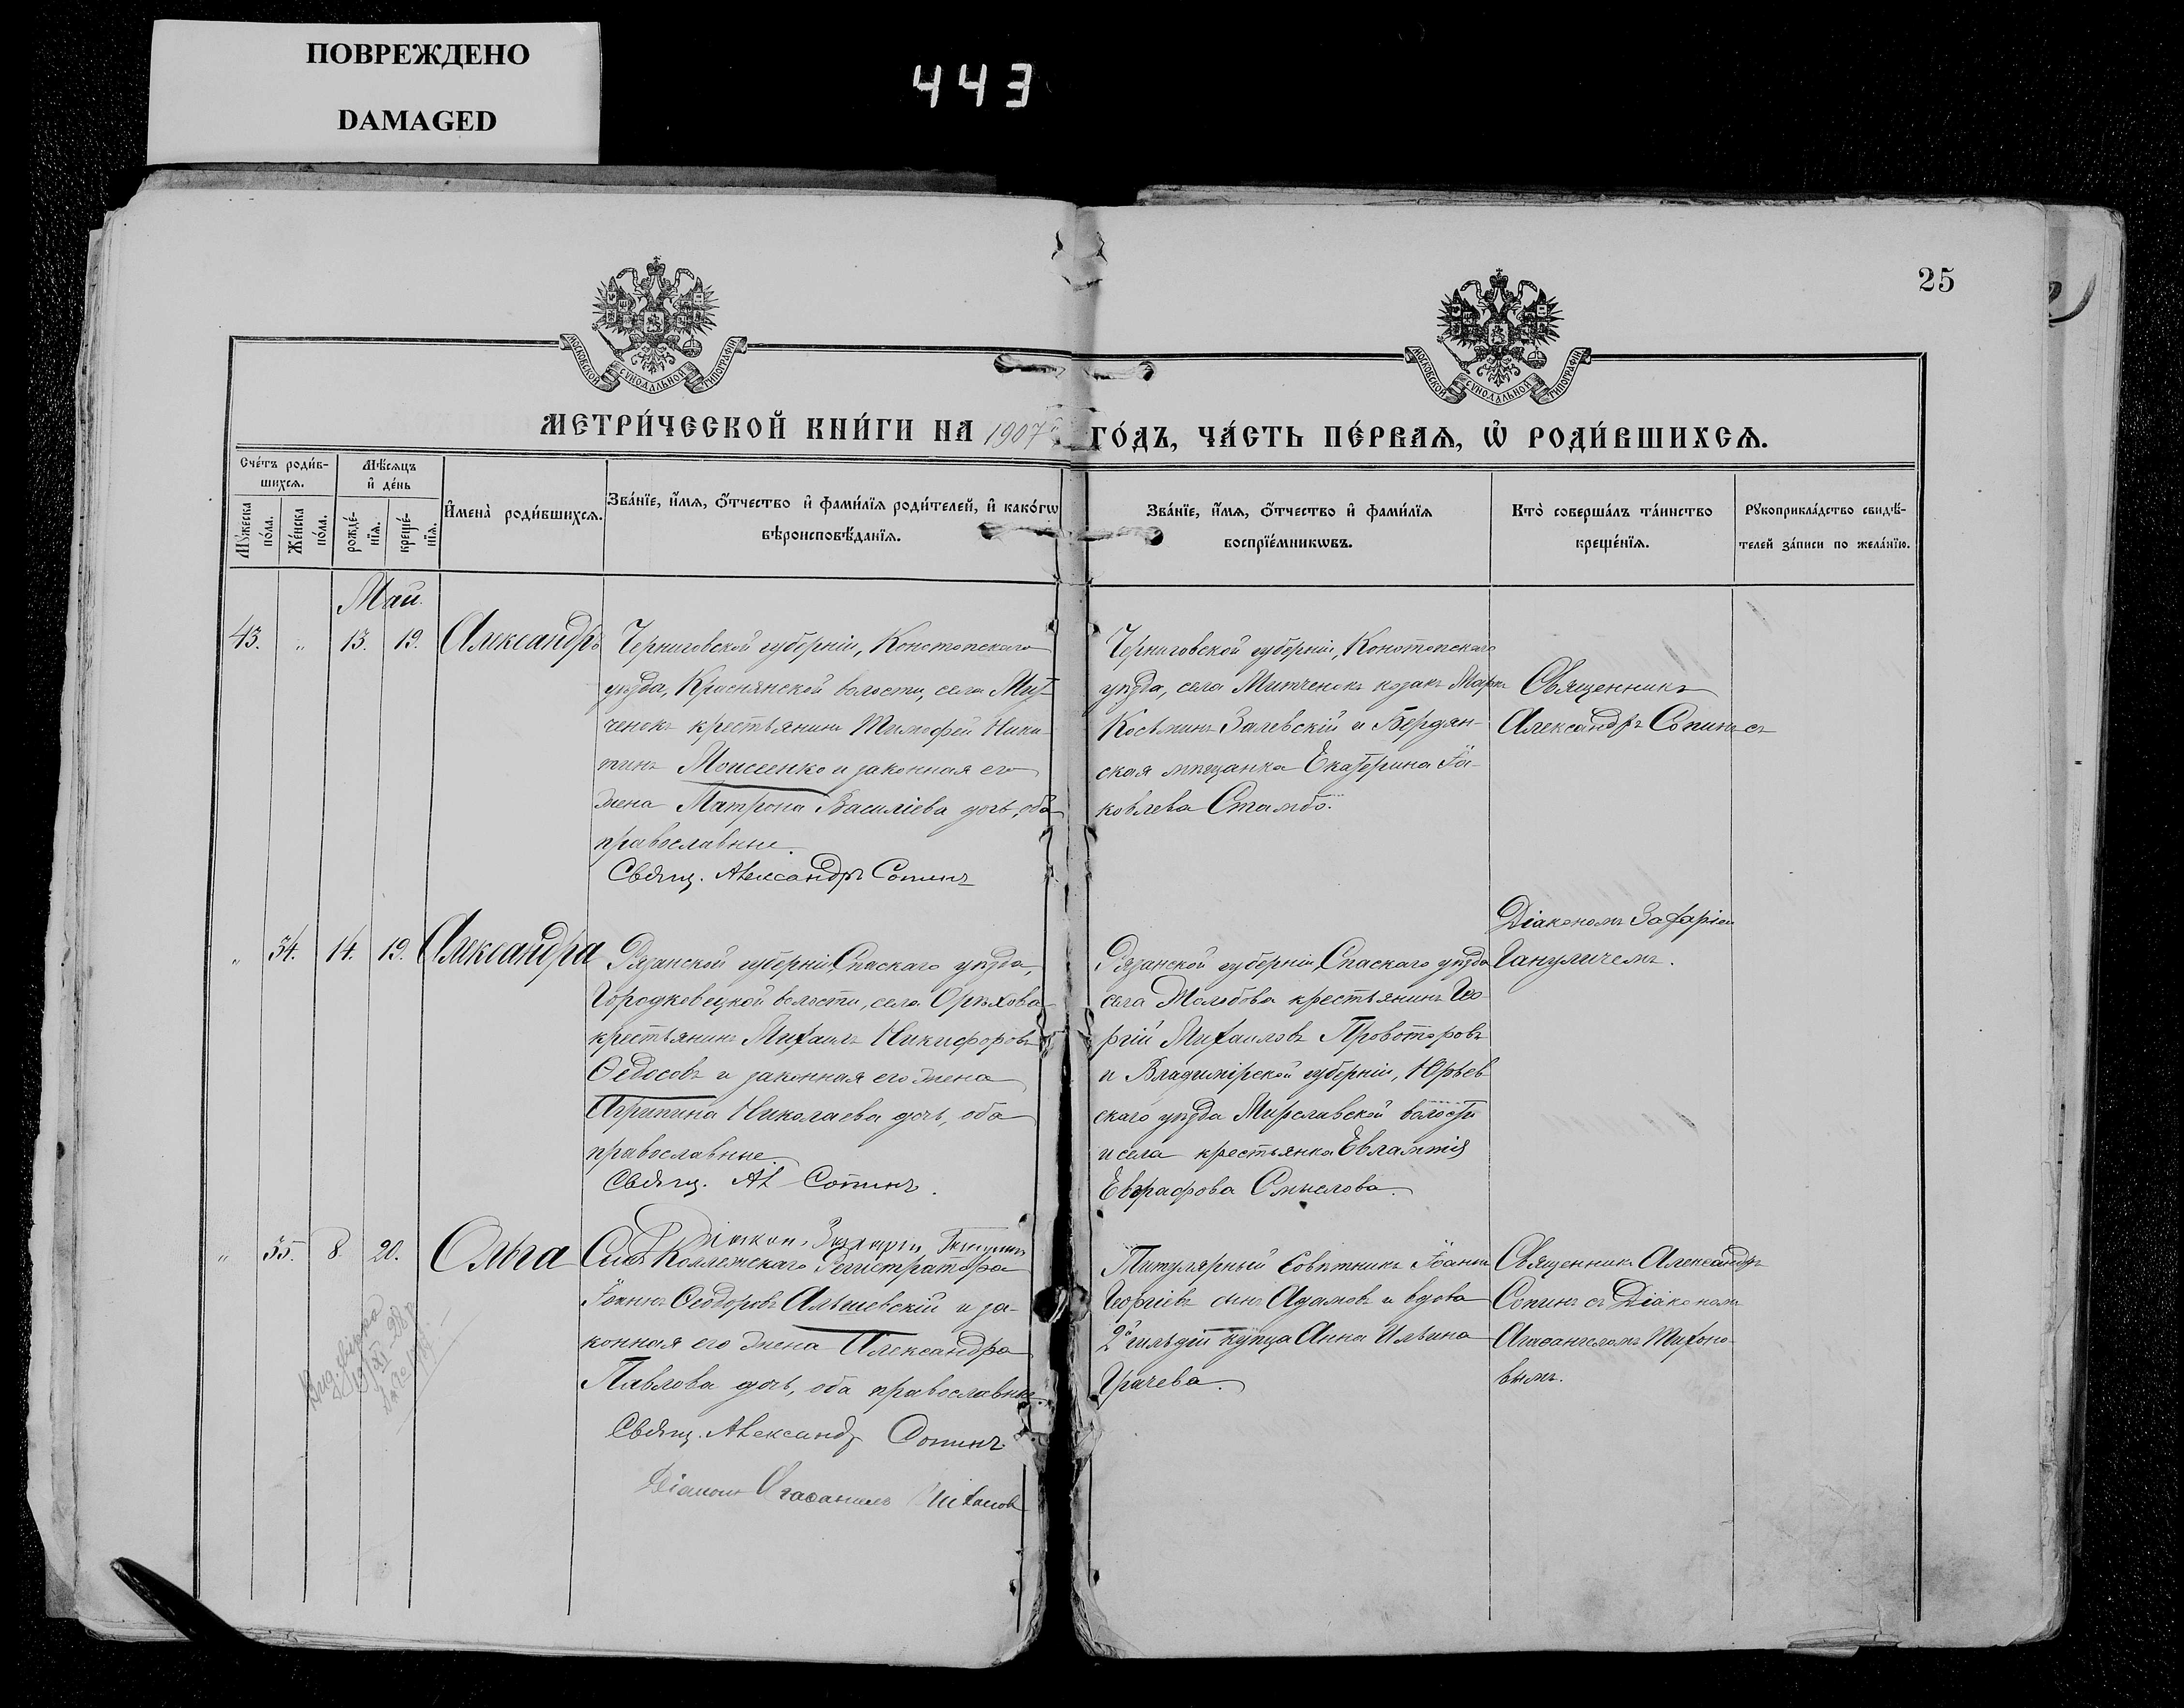 ПОВРЕЖДЕНО
DAMAGED
443
25
МОСКОВСКОЙ СѴНОДАЛЬНОЙ ТИПОГРАФІИ
МОСКОВСКОЙ СѴНОДАЛЬНОЙ ТИПОГРАФІИ
МЕТРИ́ЧЕСКОЙ КНИ́ГИ НА 1907 ГО́ДЪ, ЧА́СТЬ ПЕ́РВАѦ, Ѡ РОДИ́ВШИХСѦ.
Сче́тъ роди́в-
шихсѧ.
Мѣ́сѧцъ
и де́нь
Мꙋ́жеска по́ла.
Же́нска по́ла.
рожде́-
нїѧ.
креще́-
нїѧ.
Имена̀ роди́вшихсѧ.
Зва́нїе, и́мѧ, о́тчество и фами́лїѧ роди́телей, и како́гѡ
вѣроисповѣ́данїѧ.
Зва́нїе, и́мѧ, о́тчество и фами́лїѧ
воспрїе́мникѡвъ.
Кто̀ соверша́лъ та́инство
креще́нїѧ.
Рꙋкоприкла́дство свидѣ́-
телей за́писи по жела́нїю.
Май.
43. " 13. 19. Александръ
Черниговской губерніи, Конотопскаго
уѣзда, Краснянской волости, села Мит-
ченокъ крестьянинъ Тимофей Ники-
тинъ Моисеенко и законная его
жена Матрона Василіева дочь, оба
православные.
Свящ. Александръ Сопинъ
Черниговской губерніи, Конотопскаго
уѣзда, села Митченокъ козакъ Маркъ
Косьминъ Залевскій и Бердян-
ская мѣщанка Екатерина Іа-
ковлева Стамбо.
Священникъ
Александръ Сопинъ съ
Діакономъ Захаріем
Гануличемъ.
" 34. 14. 19. Александра
Рязанской губерніи Спаскаго уѣзда,
Городковецкой волости, села Орѣхова
крестьянинъ Михаилъ Никифоровъ
Ѳедосовъ и законная его жена
Агрипина Николаева дочь, оба
православные
Свящ. Ал Сопинъ.
Діакон. Захарій
Рязанской губерніи Спаскаго уѣзда
села крестьянинъ Гео-
ргій Михаиловъ Провоторовъ
и Владимірской губерніи, Юрьев
скаго уѣзда Мирславской волости
и села крестьянка Евлампія
Евграфова Смыслова.
" 35. 8 20. Ольга
Сынъ Коллежскаго Регистратора
Іоаннъ Ѳеодоровъ Альшевскій и за-
конная его жена Александра
Павлова дочь, оба православные
Свящ. Александр Сопинъ
Діаконъ Агаѳангелъ Тихонов
Титулярный Совѣтникъ Іоаннъ
Георгіевъ сынъ Адамовъ и вдова
2й гильдіи купца Анна Ильина
Грачева.
Священникъ Александръ
Сопинъ съ Діакономъ
Агаѳангеломъ Тихоно-
вымъ.